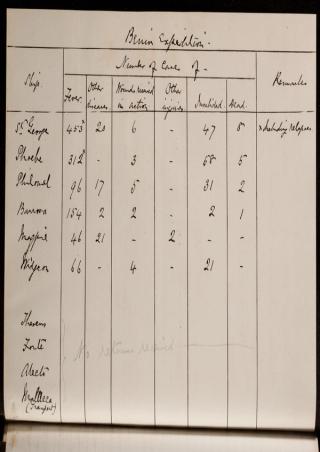 Benin Expedition.
Number of Cases of -
Ship. Fever. Other diseases Wounds received in action Other injuries Invalided. Dead. Remarks
St. George 453x 20 6 - 47 8 x Including relapses
Phoebe 312x - 3 - 68 5
Philomel 96 17 5 - 31 2
Barrosa 154 2 2 - 2 1
Magpie 46 21 - 2 - -
Widgeon 66 - 4 - 21 -
Theseus
Forte
No returns received
Alecto
Malacca
(Transport)